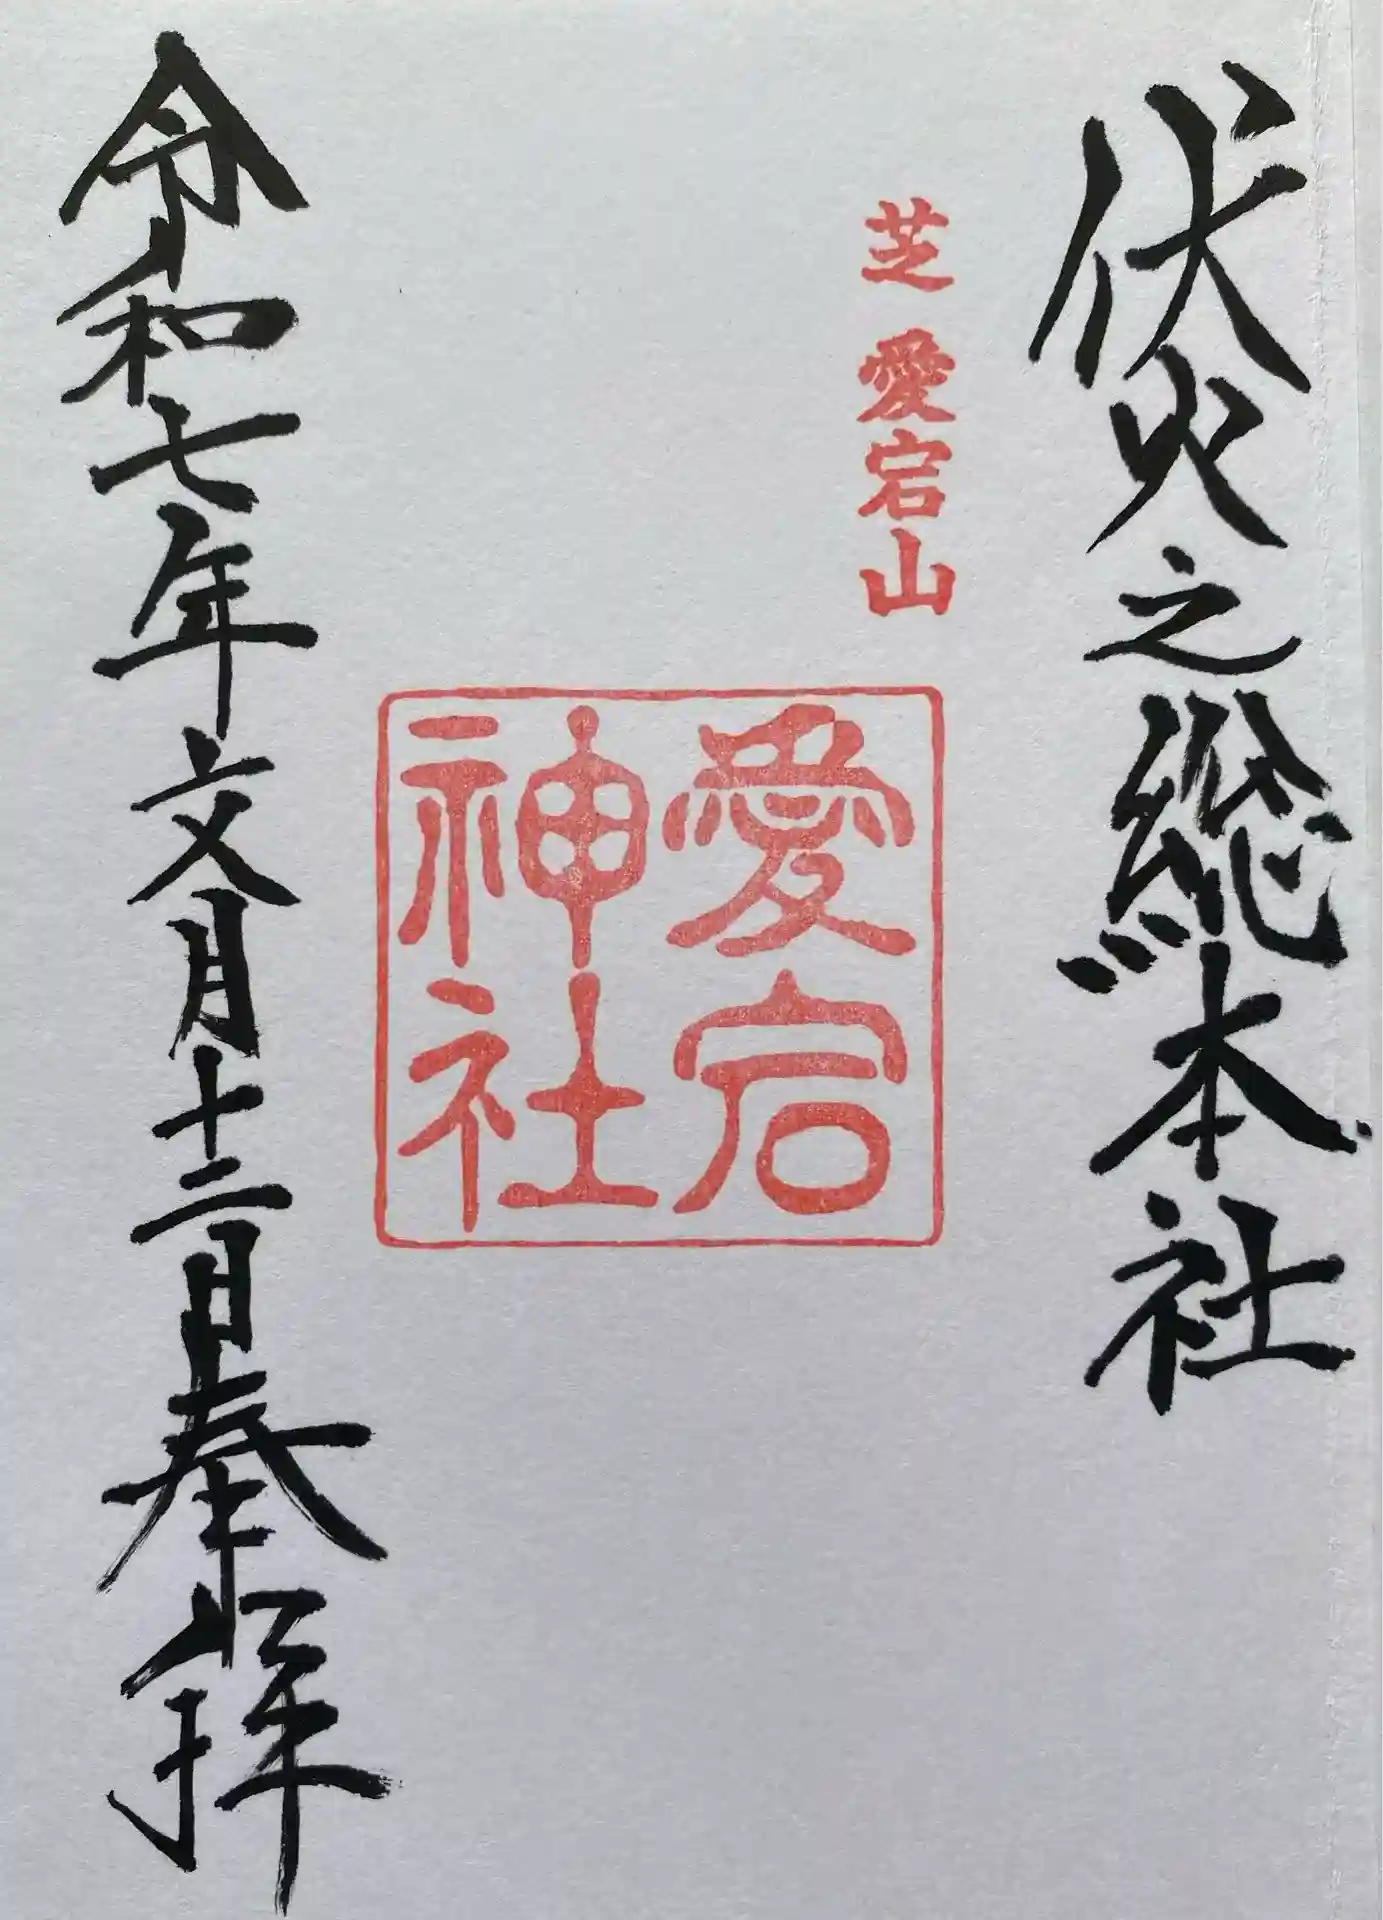 伏火之総本社
芝 愛宕山
愛宕
神社
令和七年文月十二日奉拝